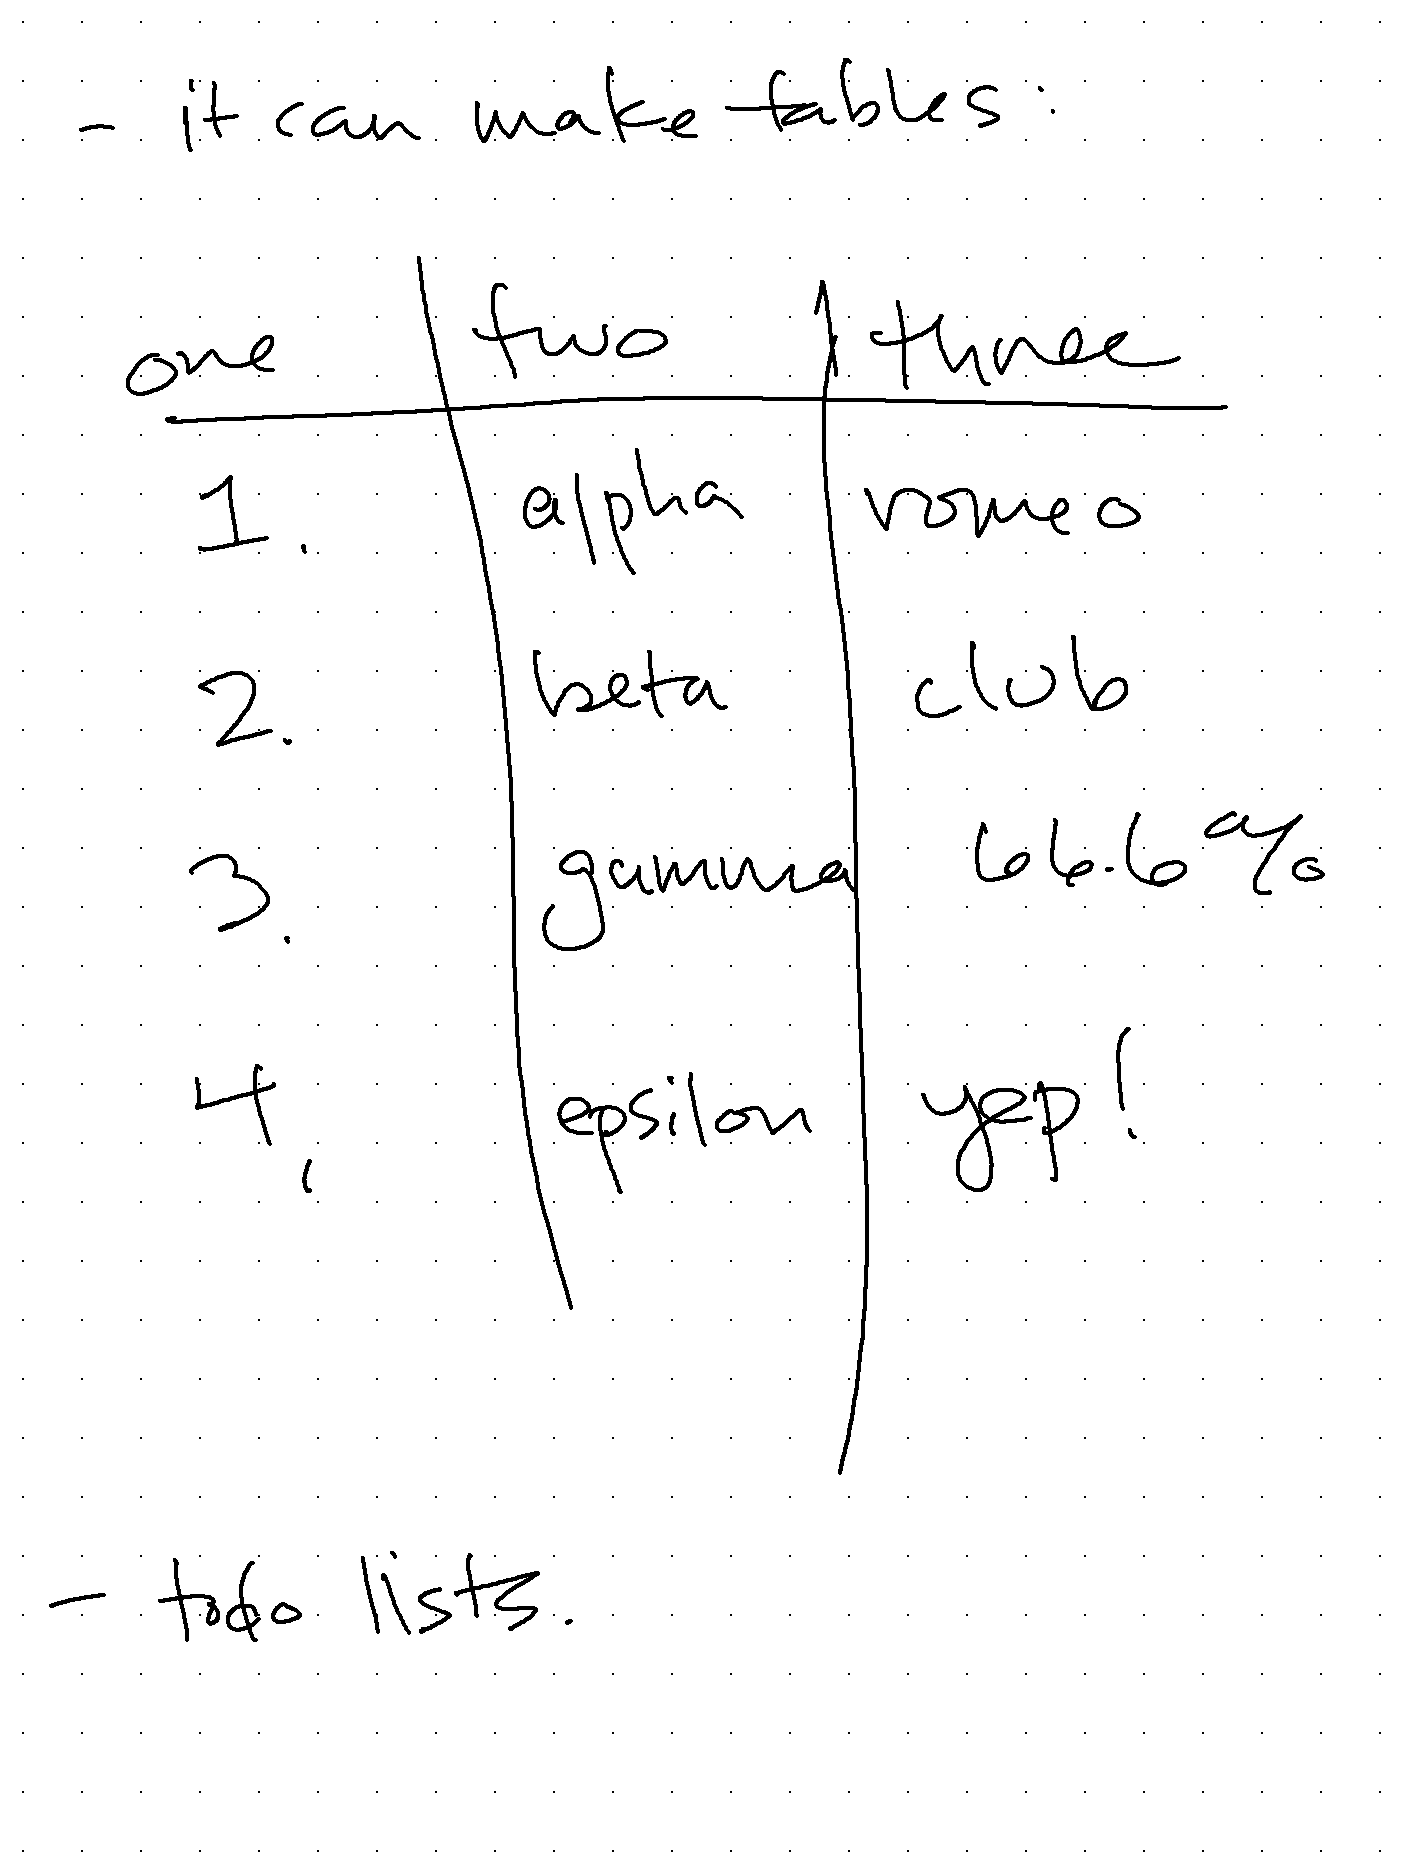 - it can make tables:
one two three
1. alpha romeo
2. beta club
3. gamma 66.6%
4. epsilon yep!
- todo lists.